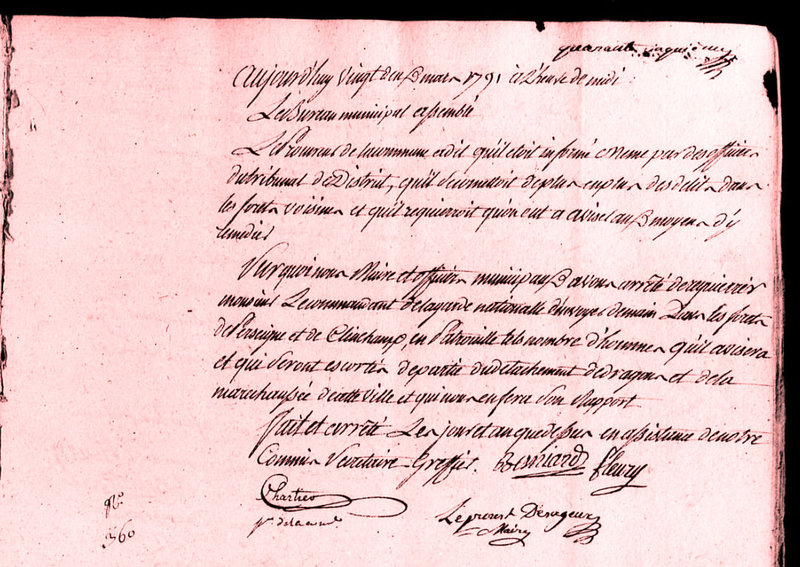 quarante cinquieme
aujourd'huy vingt deux mars 1791 à l'heure de midi
Le Bureau municipal assemblé
Le Procureur de la commune a dit qu'il etoit informé même par des officiers
du tribunal de District, qu'il se commettoit de plus en plus des delits dans
les forets voisines et qu'il requierroit qu'on eut a aviser aux moyens d'y
remedier
Sur quoi nous Maire et officiers municipaux avons arrêté de requierrér
monsieur Le commandant de la garde nationalle d'envoyer demain dans les forets
de Perseigne et de Clinchamp, en Patrouille tels nombre d'hommes qu'il avisera
et qui seront escortés de partie du detachement de dragons et de la
marechaussée de cette ville et qui nous en fera son Rapport
fait et arrêté Les jour et an que dessus en assistance de notre
Commis Secretaire Greffier. Besniard fleury
Chartier
pr de la comne
Leproust Désageux
Maire
Nº
360